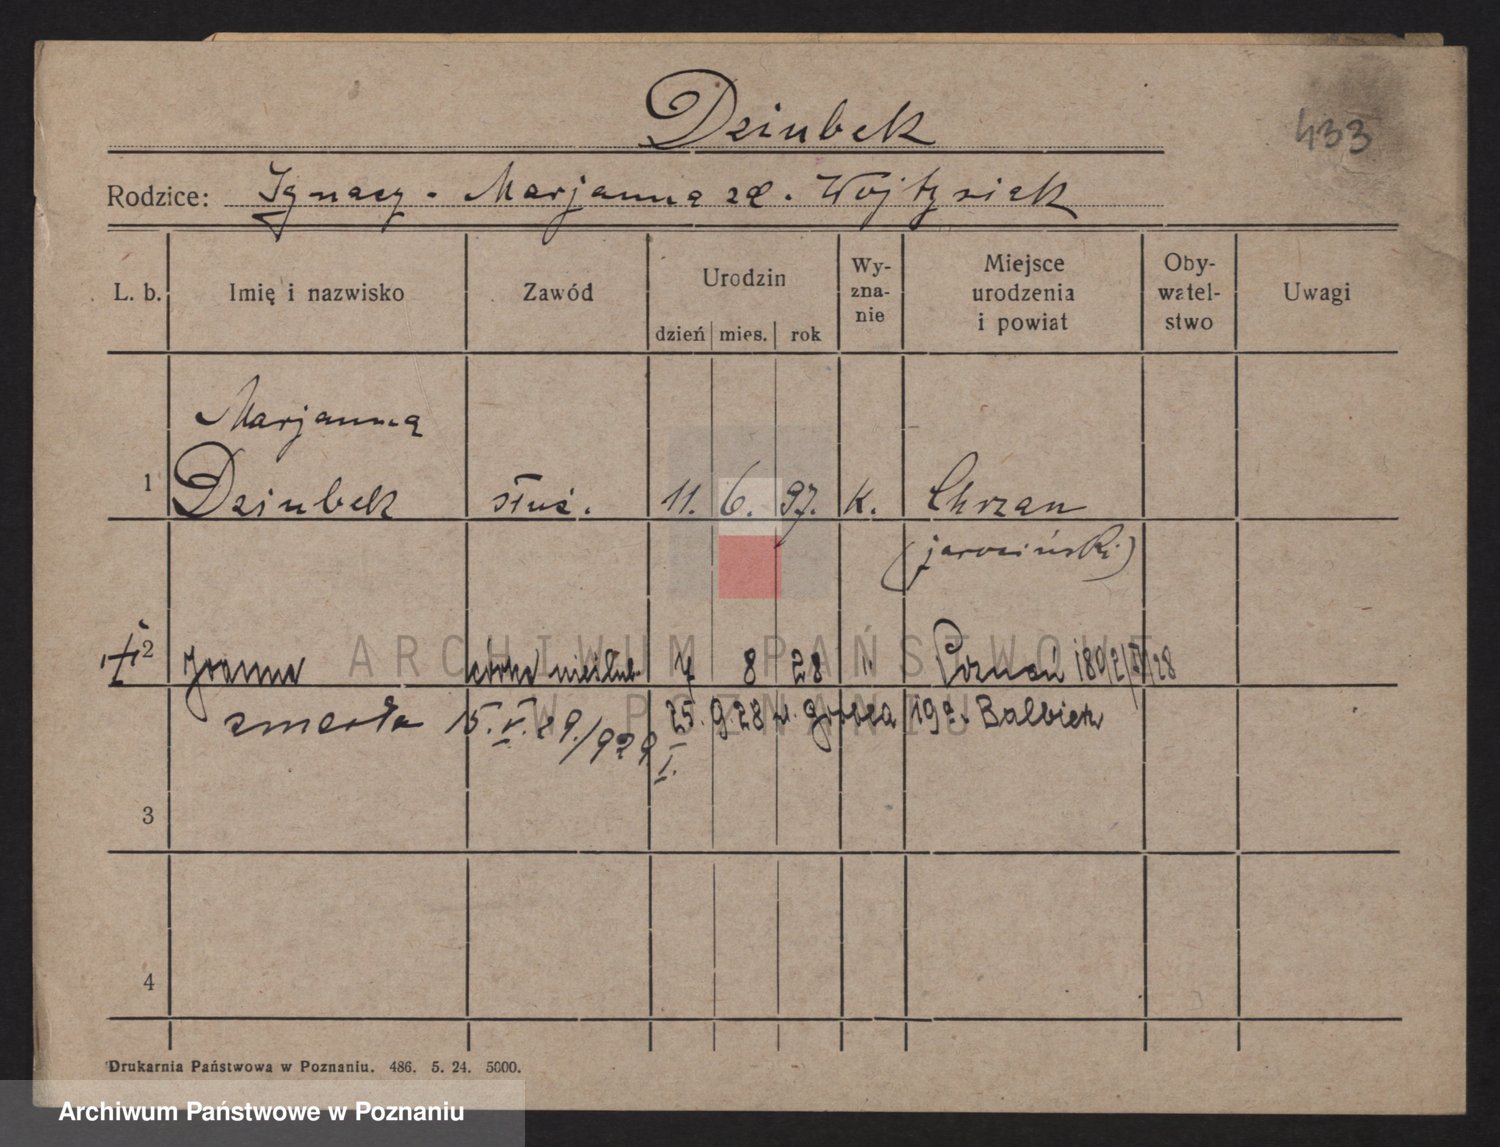 Dziubek
433
Rodzice: Ignacy - Marjanna zd. Wojtysiak
L. b. Imię i nazwisko Zawód Urodzin dzień mies. rok Wy-zna-nie Miejsce urodzenia i powiat Oby-watel-stwo Uwagi
Marjanna
1 Dziubek służ. 11. 6. 97. k. Chrzan
(jarociński)
2 Joanna córka nieślub. 7 8 28 Poznań
zmarła 15. V. 29./929 I. 25. 9 28 Grobla 19 Balbiek
3
4
Drukarnia Państwowa w Poznaniu. 486. 5. 24. 5000.
ARCHIWUM PAŃSTWOWE
W POZNANIU
Archiwum Państwowe w Poznaniu